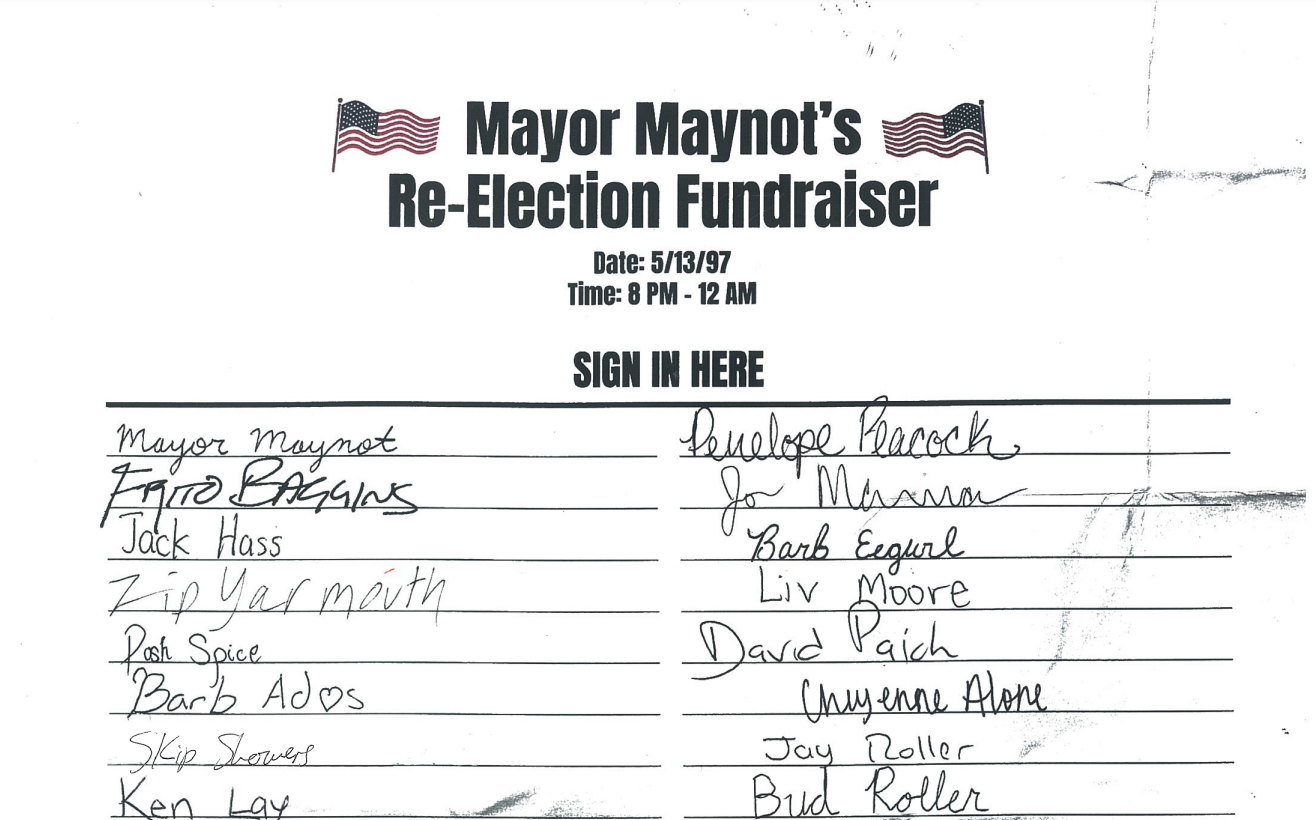 Mayor Maynot's
Re-Election Fundraiser
Date: 5/13/97
Time: 8 PM - 12 AM
SIGN IN HERE
Mayor Maynot
Frito Baggins
Jack Hass
Zip Yarmouth
Posh Spice
Barb Ad♡s
Skip Showers
Ken Lay
Penelope Peacock
Jo Mamma
Barb Eegurl
Liv Moore
David Paich
Chyenne Alone
Jay Roller
Bud Roller